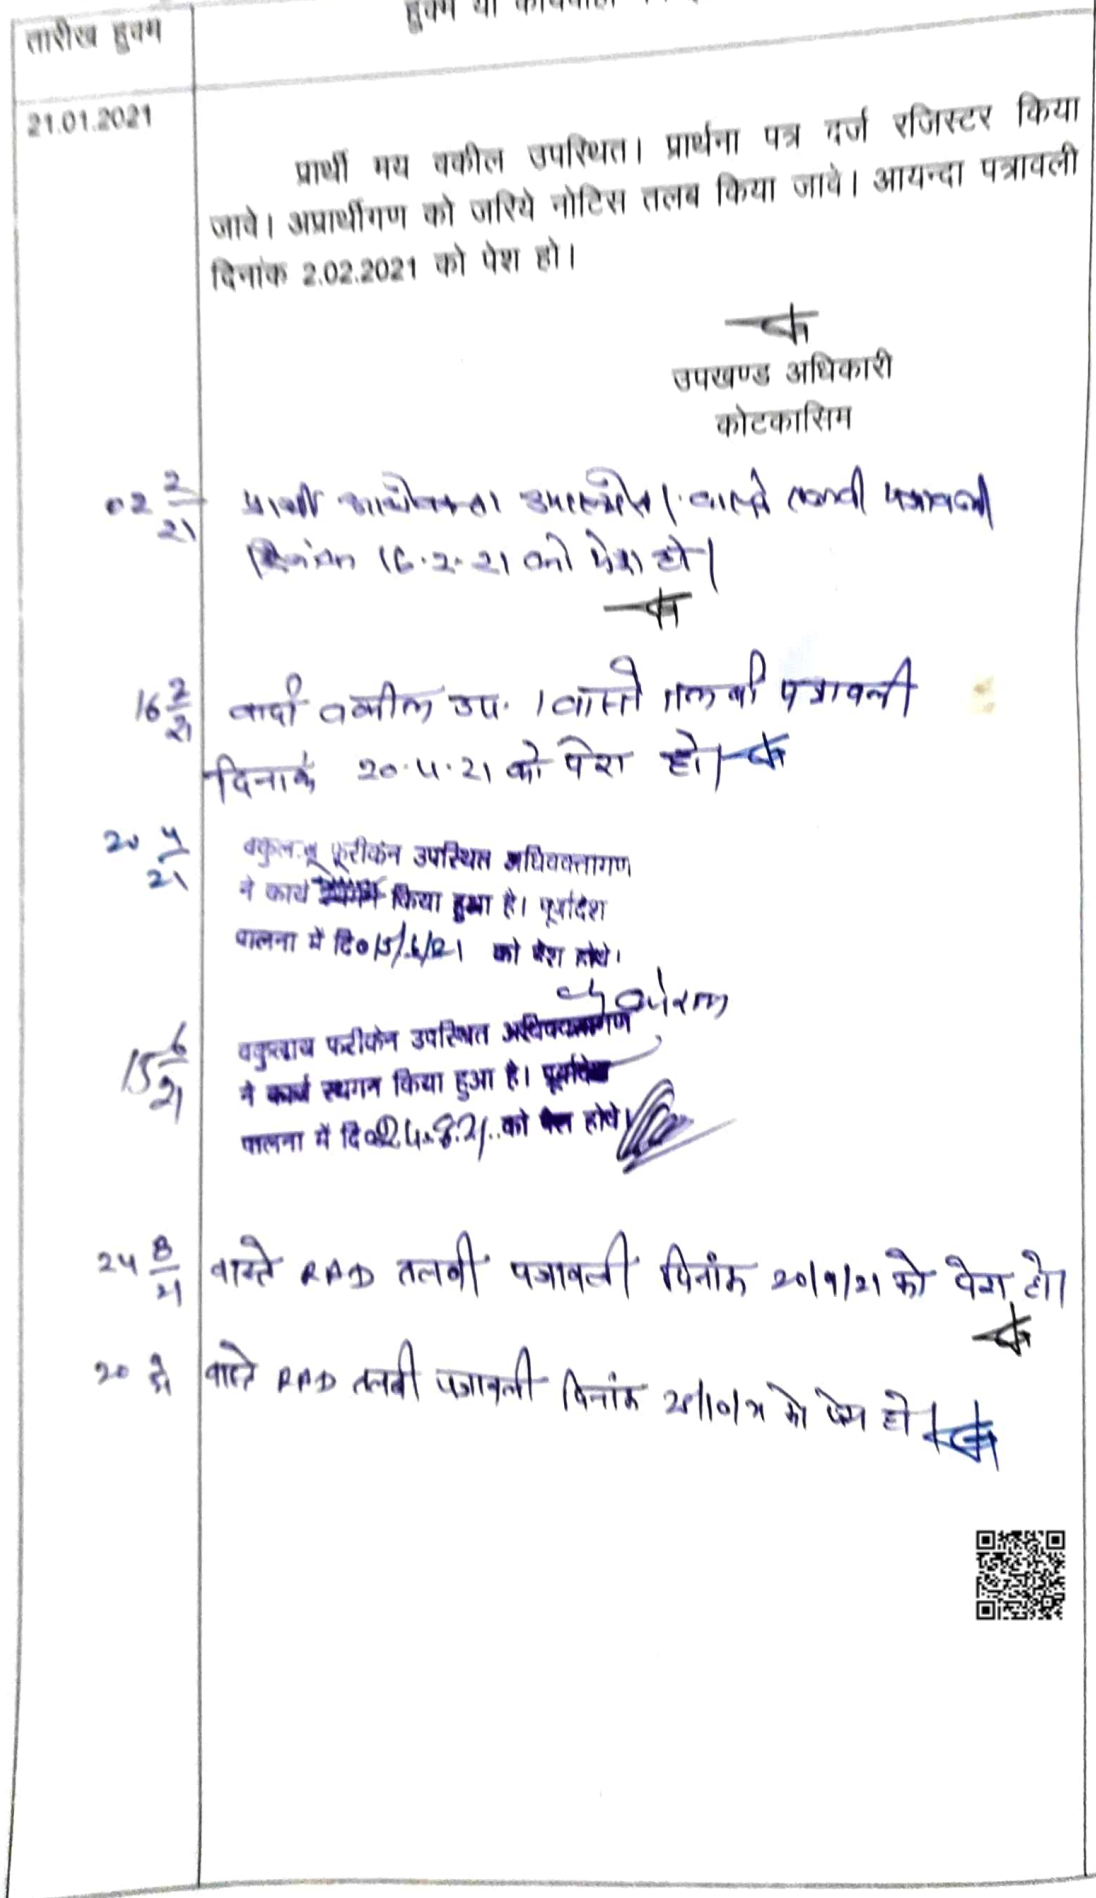 तारीख हुक्म
हुक्म या कार्यवाही
21.01.2021
प्रार्थी मय वकील उपस्थित। प्रार्थना पत्र दर्ज रजिस्टर किया
जावे। अप्रार्थीगण को जरिये नोटिस तलब किया जावे। आयन्दा पत्रावली
दिनांक 2.02.2021 को पेश हो।
उपखण्ड अधिकारी
कोटकासिम
02 2/21 प्रार्थी उपस्थित। वास्ते तलबी पत्रावली
दिनांक 16.2.21 को पेश हो।
16 2/21 वादी वकील उप.। वास्ते तलबी पत्रावली
दिनांक 20.4.21 को पेश हो।
20 4/21 फरीकेन उपस्थित अधिवक्तागण
ने कार्य किया हुआ है। पूर्वादेश
पालना में दि० 15/6/21 को पेश होवे।
15 6/21 वकुलाय फरीकेन उपस्थित अधिवक्तागण
ने कार्य स्थगन किया हुआ है। पूर्वादेश
पालना में दि० 24.8.21.. को पेश होवे।
24 8/21 वास्ते RAD तलबी पत्रावली दिनांक 20/9/21 को पेश हो।
20 9/21 वास्ते RAD तलबी पत्रावली दिनांक को पेश हो।